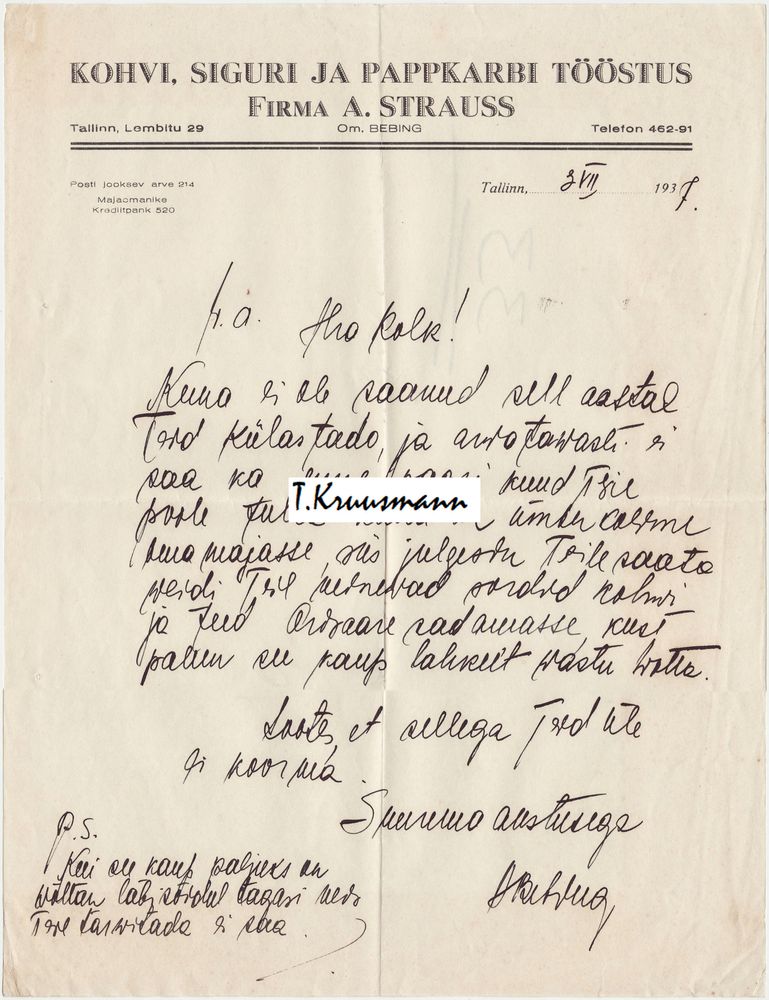 KOHVI, SIGURI JA PAPPKARBI TÖÖSTUS
FIRMA A. STRAUSS
Tallinn, Lembitu 29 Om. BEBING Telefon 462-91
Posti jooksev arve 214
Majaomanike
Krediitpank 520
Tallinn, 3 VII 1937.
A. Kolk!
Kuna ei ole saanud sell aastal
Teid külastada, ja arvatawasti ei
saa ka kuud Teie
T.Kruusmann
poole ümber
oma majasse, siis julgesin Teile saata
weidi Teil sordid kohwi
ja teed sadamasse, kust
palun see kaup lahkelt wastu wõtta.
Lootes, et sellega Teid üle
ei koorma.
Suurema austusega
P.S.
Kui see kaup paljuks on
wõttan tagasi
Teie tarwitada ei saa.
ABebing